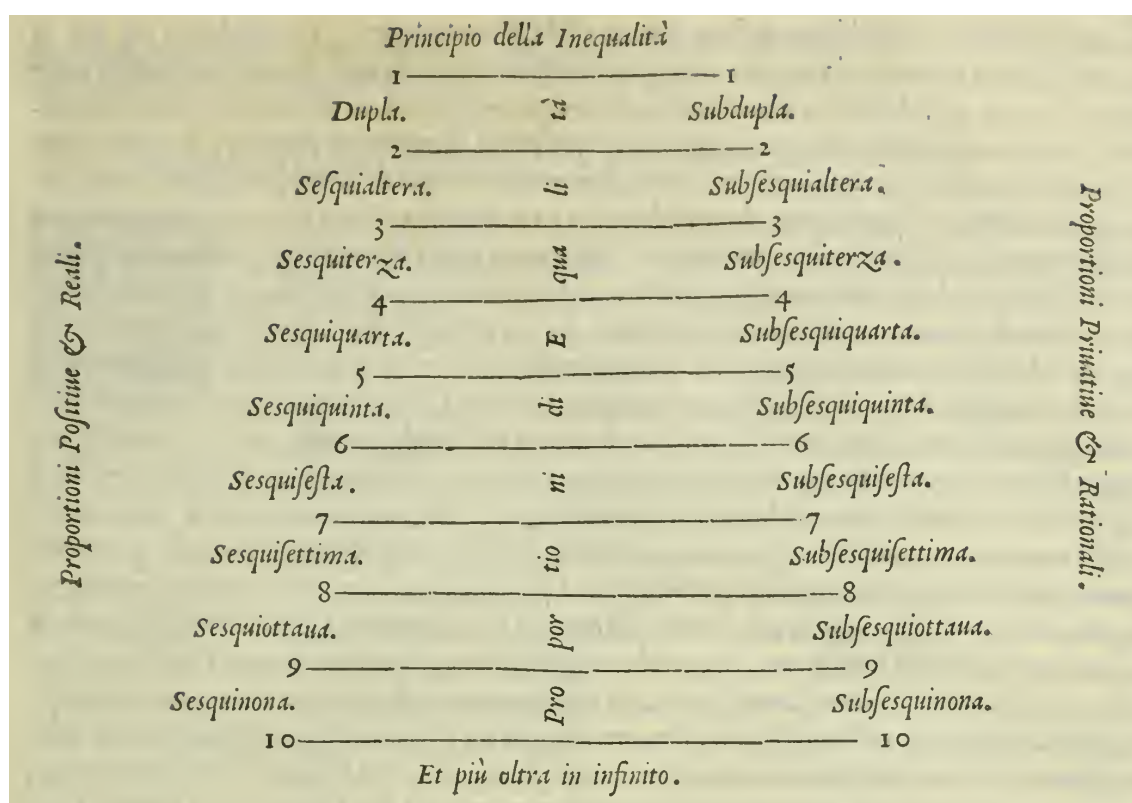 Principio della Inequalità
1 1
Dupla. Subdupla.
2 2
Seſquialtera. Subſesquialtera.
3 3
Sesquiterza. Subſesquiterza.
4 4
Sesquiquarta. Subſesquiquarta.
5 5
Sesquiquinta. Subſesquiquinta.
6 6
Sesquiſeſta. Subſesquiſeſta.
7 7
Sesquiſettima. Subſesquiſettima.
8 8
Sesquiottaua. Subſesquiottaua.
9 9
Sesquinona. Subſesquinona.
10 10
Et più oltra in infinito.
Proportioni Poſitiue & Reali.
Pro por tio ni di E qua li tà
Proportioni Priuatiue & Rationali.